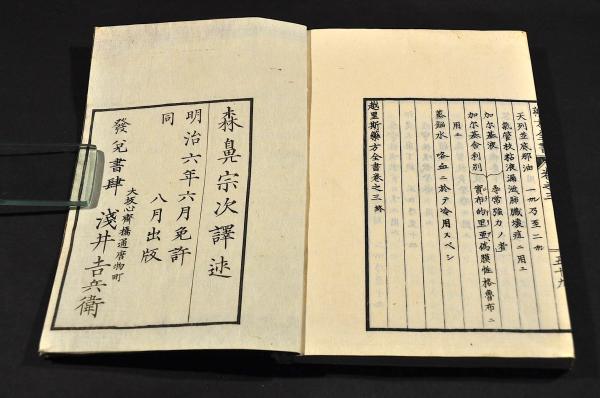 卷之三 五十九
天列並底那油 乃至二
氣管枝粘液漏泄肺臟壞疽ニ用エ
加尔基液 強力ノ者
加尔基舎利別 實布的里亜偽膜性格魯布ニ
用エ
蒸餾水 咯血ニ於テ冷用スベシ
越里斯藥方全書卷之三終
森鼻宗次譯述
明治六年六月免許
同 八月出版
大坂心齋橋通唐物町
發兌書肆 淺井吉兵衛